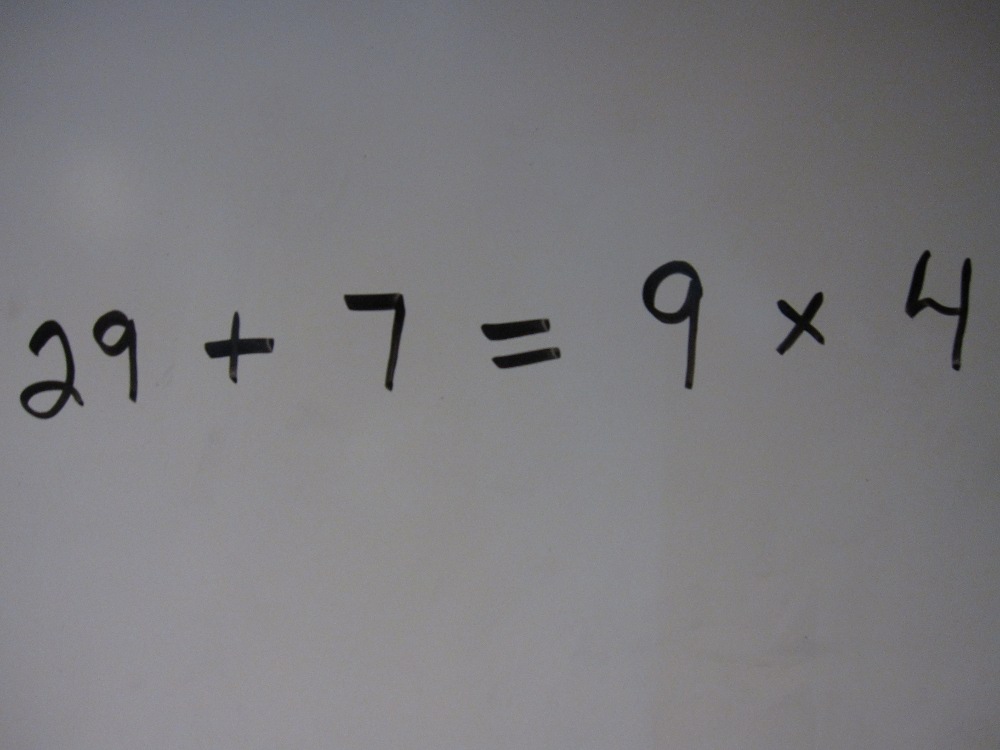 29 + 7 = 9 × 4